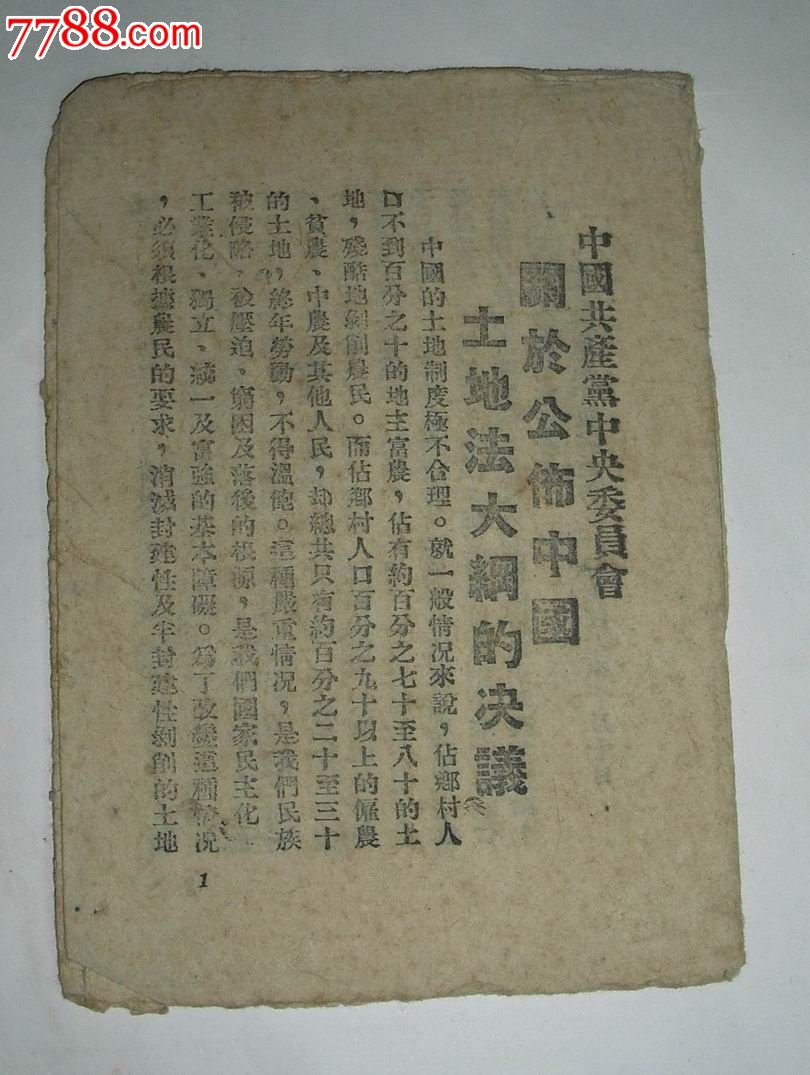 7788.com
中國共產黨中央委員會
關於公佈中國
土地法大綱的决議
中國的土地制度極不合理。就一般情况來說，佔鄉村人
口不到百分之十的地主富農，佔有約百分之七十至八十的土
地，殘酷地剝削農民。而佔鄉村人口百分之九十以上的僱農
、貧農、中農及其他人民，却總共只有約百分之二十至三十
的土地，終年勞動，不得溫飽。這種嚴重情况，是我們民族
被侵略、被壓迫、窮困及落後的根源，是我們國家民主化、
工業化、獨立、統一及富强的基本障礙。爲了改變這種情况
，必須根據農民的要求，消滅封建性及半封建性剝削的土地
1